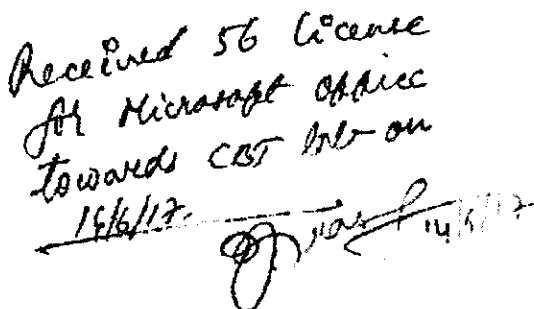 Received 56 license
for Microsoft office
towards CBT lab on
14/6/17.
14/6/17